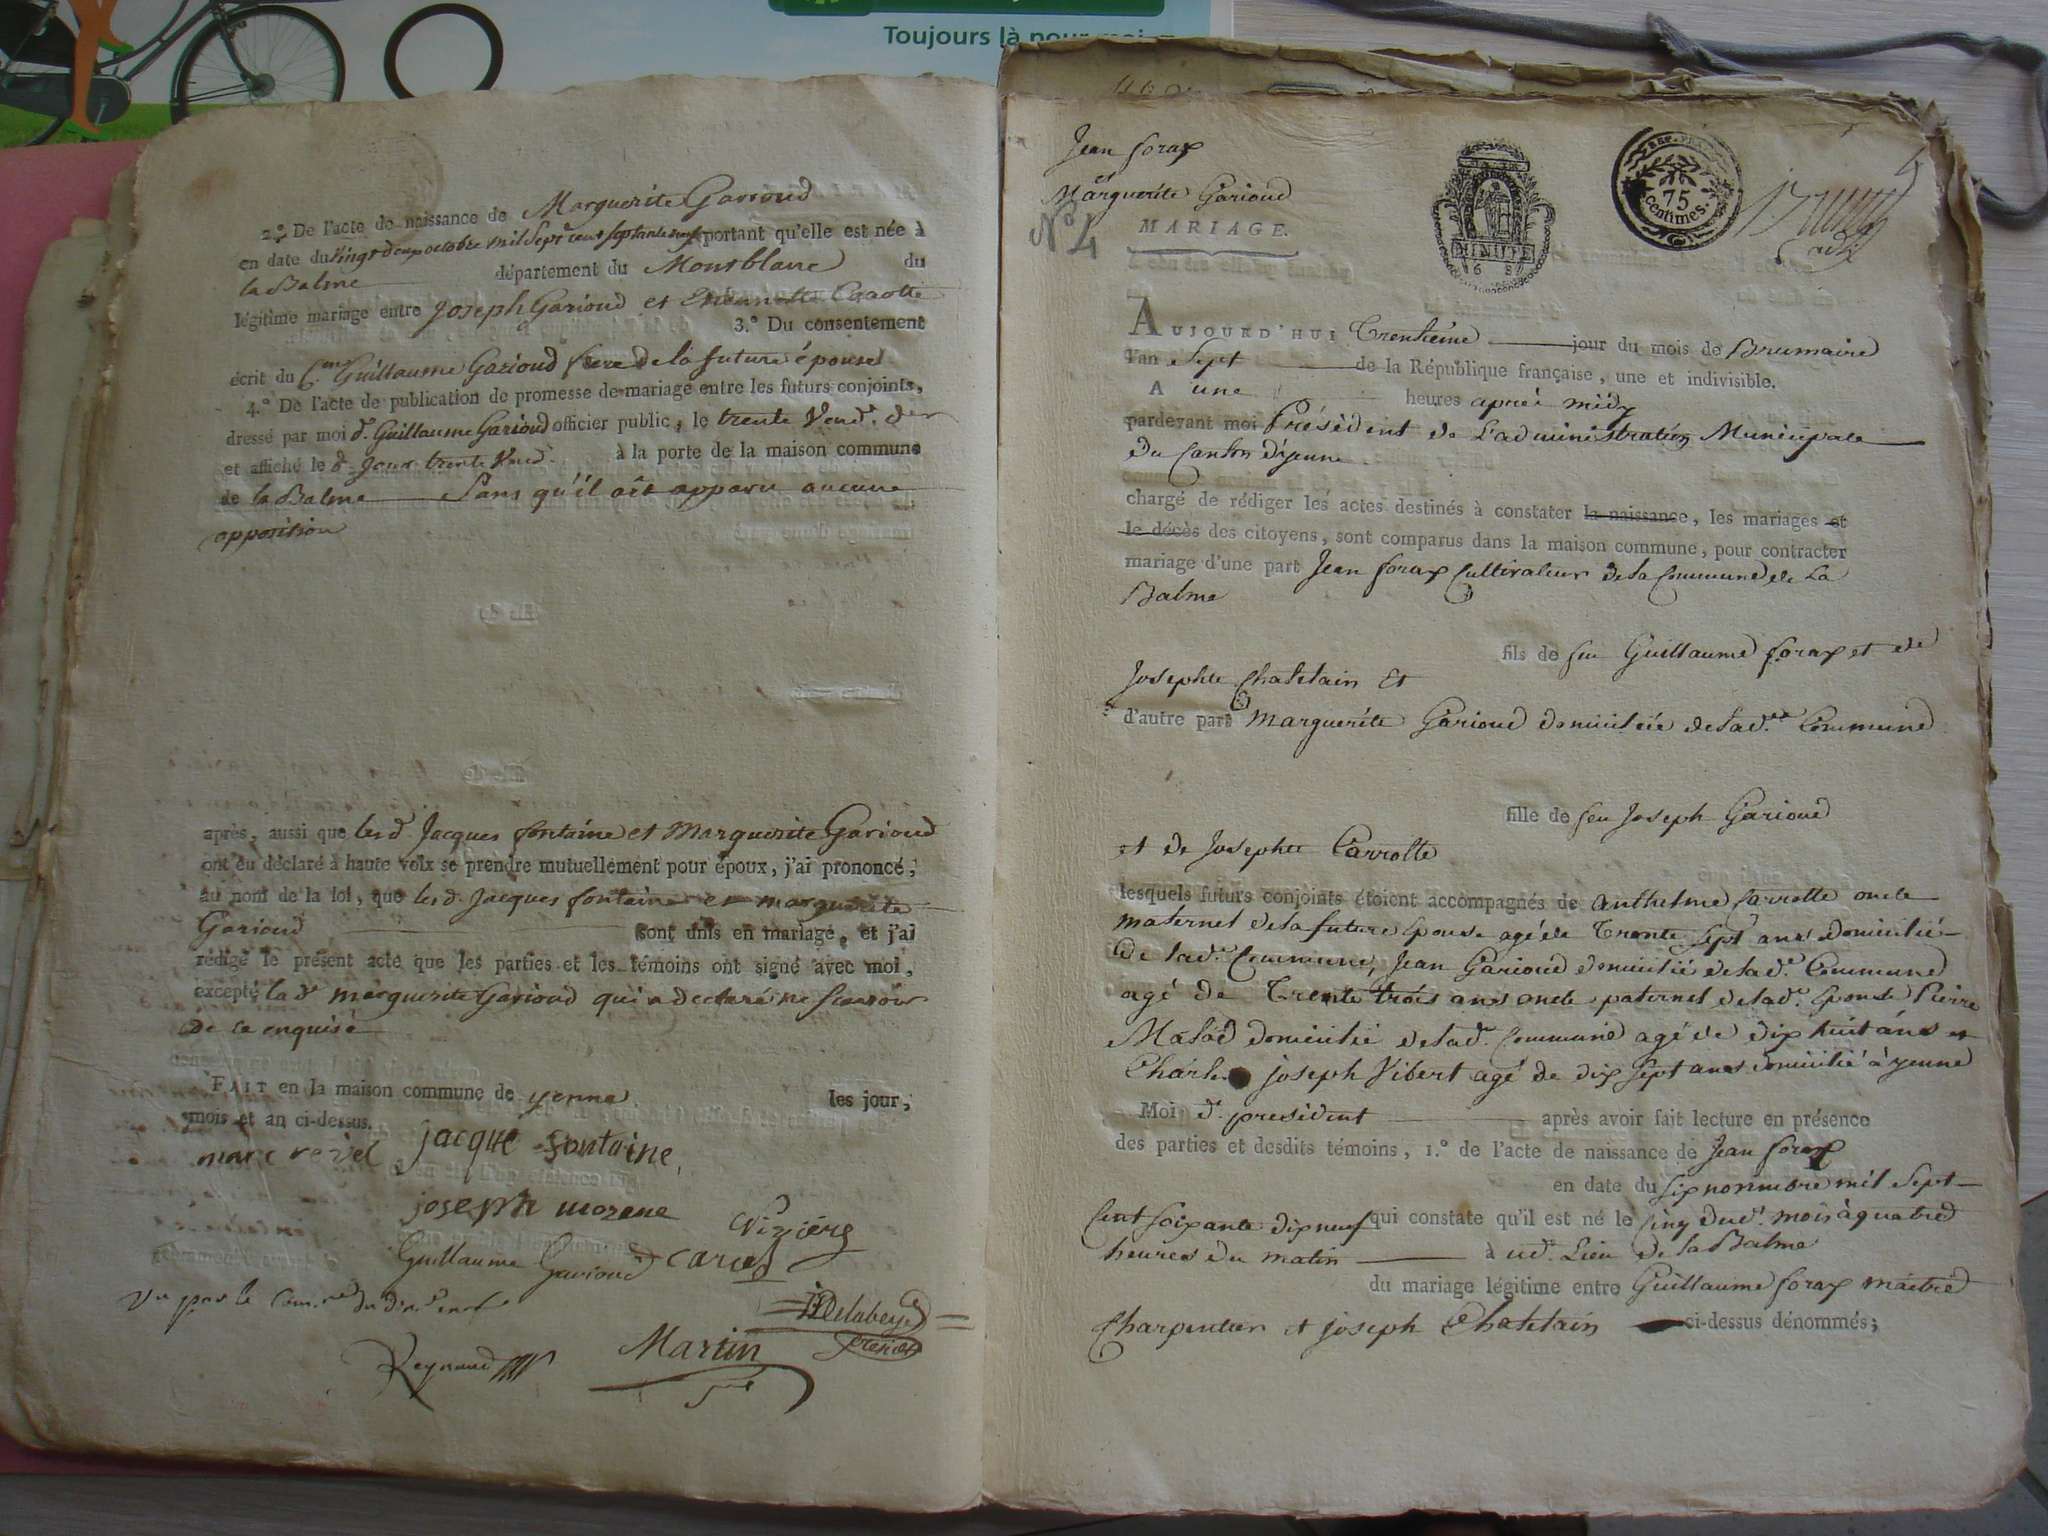 Toujours là pour moi
2.° De l'acte de naissance de Marguerite Garioud
en date du Vingt deux octobre mil Sept cent septante neuf portant qu'elle est née à
la Balme département du Montblanc du
légitime mariage entre Joseph Garioud et Etiennette Carotte
3.° Du consentement
écrit du C.en Guillaume Garioud frere de la future épouse
4.° De l'acte de publication de promesse de mariage entre les futurs conjoints,
dressé par moi d. Guillaume Garioud officier public, le trente Vend.e der
et affiché le d. jour trente Vend. à la porte de la maison commune
de la Balme Sans qu'il ait apparu aucune
opposition
après, aussi que lesd. Jacques fontaine et Marguerite Garioud
ont eu déclaré à haute voix se prendre mutuellement pour époux, j'ai prononcé,
au nom de la loi, que lesd. Jacques fontaine et marguerite
Garioud sont unis en mariage, et j'ai
rédigé le présent acte que les parties et les témoins ont signé avec moi,
excepté lad.e marguerite Garioud qui a declaré ne scavoir
de ce enquise
FAIT en la maison commune de yenne les jour,
mois et an ci-dessus.
marc revel jacque fontaine
joseph morene
Guillaume Garioud
Vu par le
Reynaud Martin
Jean forax
et
Marguerite Garioud
N° 4
MARIAGE.
MINUTE
REP. FRA.
75
centimes.
AUJOURD'HUI Trentième jour du mois de Brumaire
l'an Sept de la République française, une et indivisible.
A une heures après midy
pardevant moi Président de L'administration Municipale
du Canton d'yenne
chargé de rédiger les actes destinés à constater la naissance, les mariages et
le décès des citoyens, sont comparus dans la maison commune, pour contracter
mariage d'une part Jean forax Cultivateur de la Commune de La
Balme
fils de feu Guillaume forax et de
Josephte Chatelain Et
d'autre part Marguerite Garioud domiciliée de lad.te Commune
fille de feu Joseph Garioud
et de Josephte Carrotte
lesquels futurs conjoints étoient accompagnés de anthelme Carrotte oncle
maternel de la future Epouse agé de Trente Sept ans domicilié
de lad.e Commune, Jean Garioud domicilié de lad.e Commune
agé de Trente trois ans oncle paternel de lad.e Epouse Pierre
domicilié de lad.e Commune agé de dix huit ans et
Charles joseph Vibert agé de dix sept ans domicilié à yenne
Moi d. president après avoir fait lecture en présence
des parties et desdits témoins, 1.° de l'acte de naissance de Jean forax
en date du six novembre mil Sept
Cent soixante dix neuf qui constate qu'il est né le cinq dud. mois à quatre
heures du matin à ud. Lieu de la Balme
du mariage légitime entre Guillaume forax maitre
Charpentier et joseph Chatelain ci-dessus dénommés;